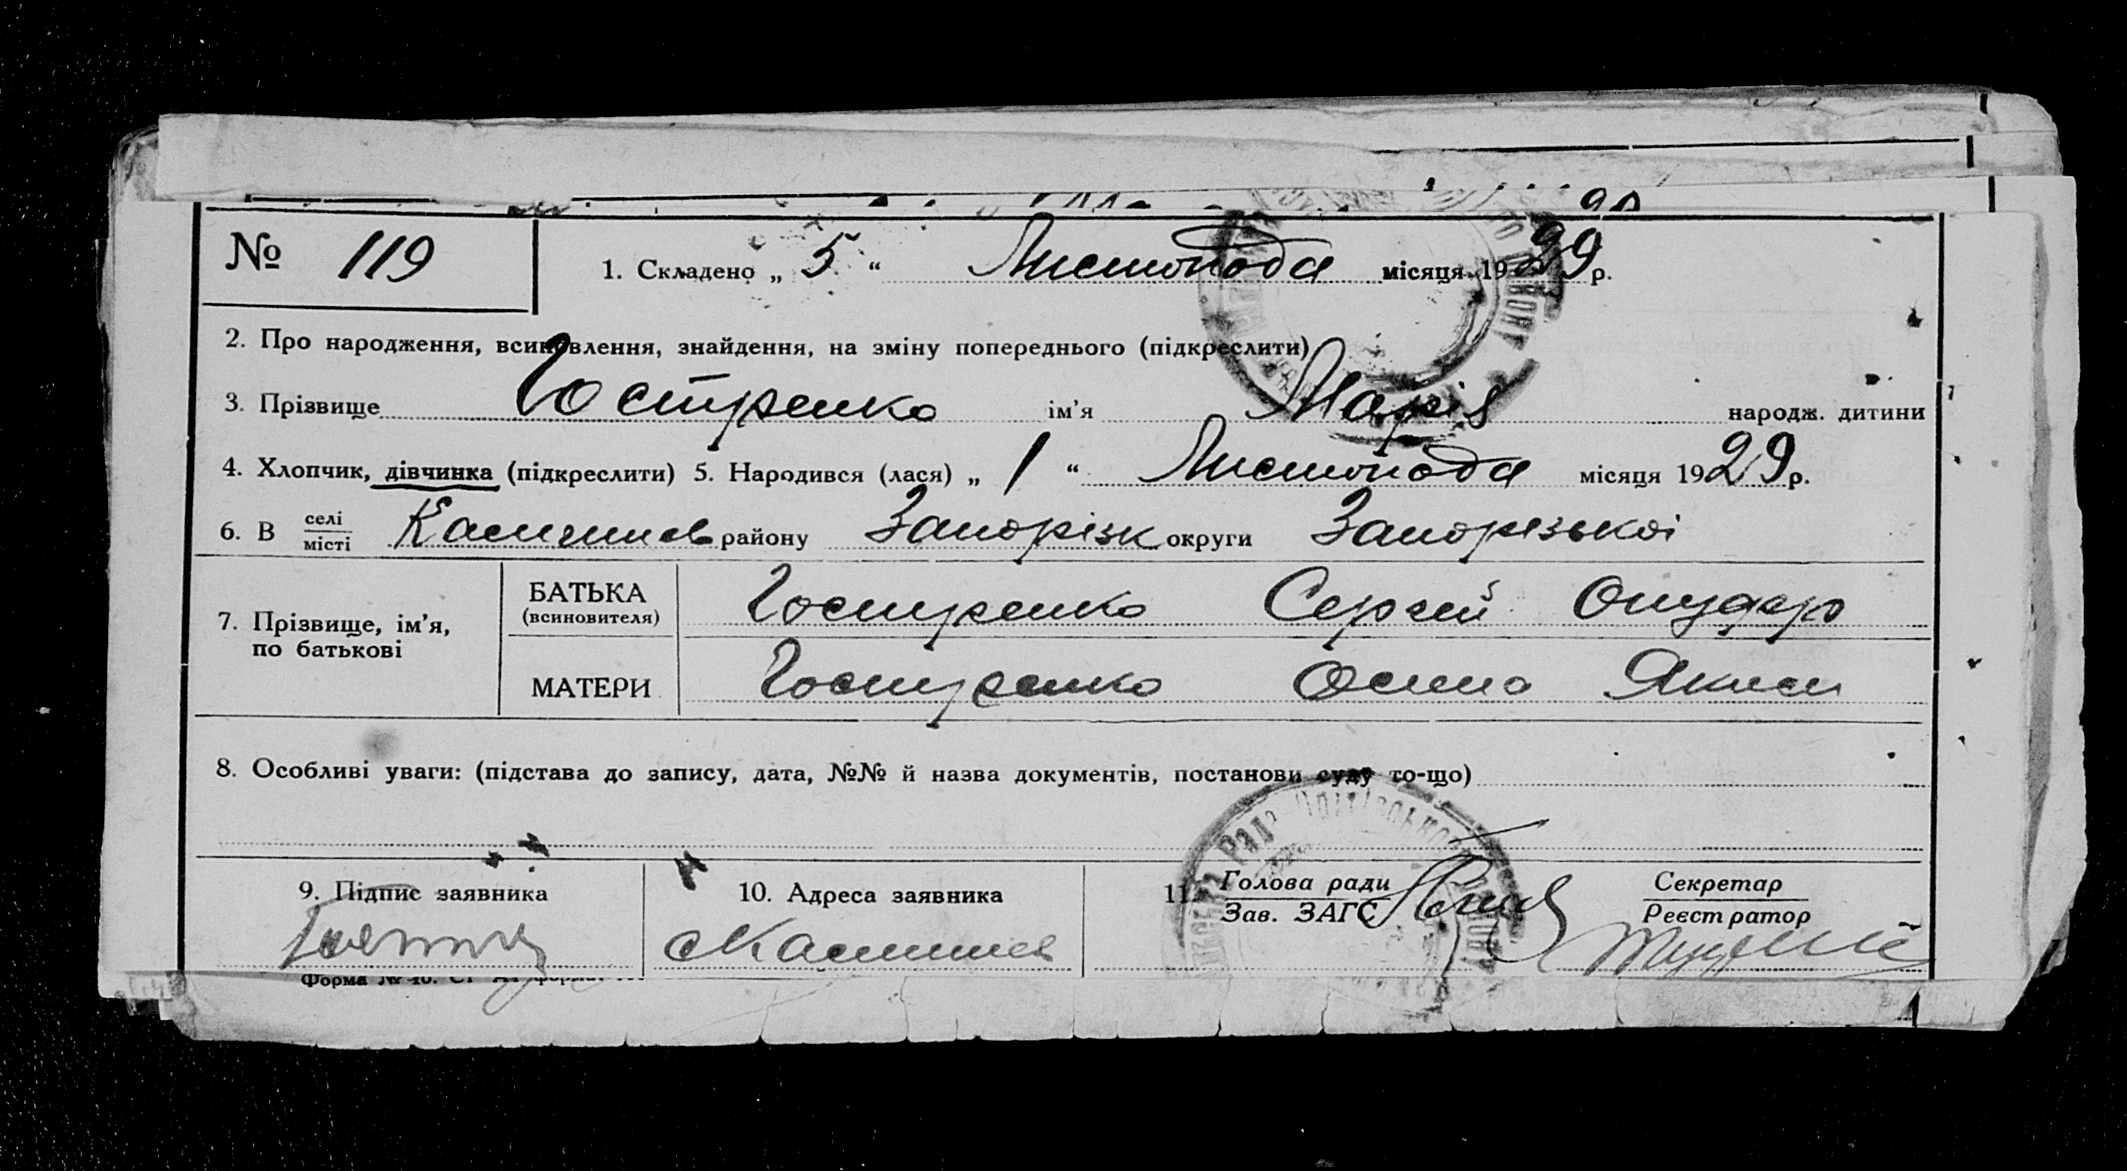 № 119
1. Складено „ 5 “ Листопада місяця 1929 р.
2. Про народження, всиновлення, знайдення, на зміну попереднього (підкреслити)
3. Прізвище Гостренко ім'я Марія народж. дитини
4. Хлопчик, дівчинка (підкреслити) 5. Народився (лася) „ 1 “ Листопада місяця 1929 р.
6. В селі місті району Запорізк округи Запорізької
7. Прізвище, ім'я, по батькові
БАТЬКА (всиновителя) Гостренко Сергей
МАТЕРИ Гостренко
8. Особливі уваги: (підстава до запису, дата, №№ й назва документів, постанови суду то-що)
9. Підпис заявника
10. Адреса заявника
11. Голова ради Зав. ЗАГС
Секретар Реєстратор